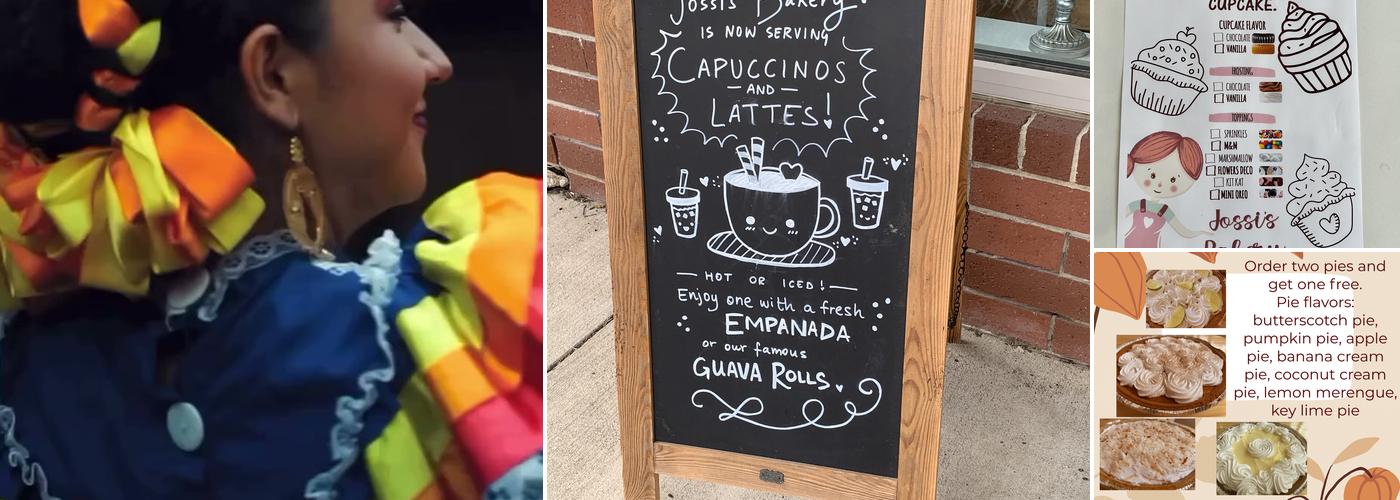 Jossi's Bakery
IS NOW SERVING
CAPUCCINOS
—AND—
LATTES!
— HOT OR ICED! —
Enjoy one with a fresh
EMPANADA
or our famous
GUAVA ROLLS.
CUPCAKE.
CUPCAKE FLAVOR
CHOCOLATE
VANILLA
FROSTING
CHOCOLATE
VANILLA
TOPPINGS
SPRINKLES
M&M
MARSHMALLOW
FLOWERS DECO
KIT KAT
MINI OREO
Jossi's
Bakery
Order two pies and
get one free.
Pie flavors:
butterscotch pie,
pumpkin pie, apple
pie, banana cream
pie, coconut cream
pie, lemon merengue,
key lime pie